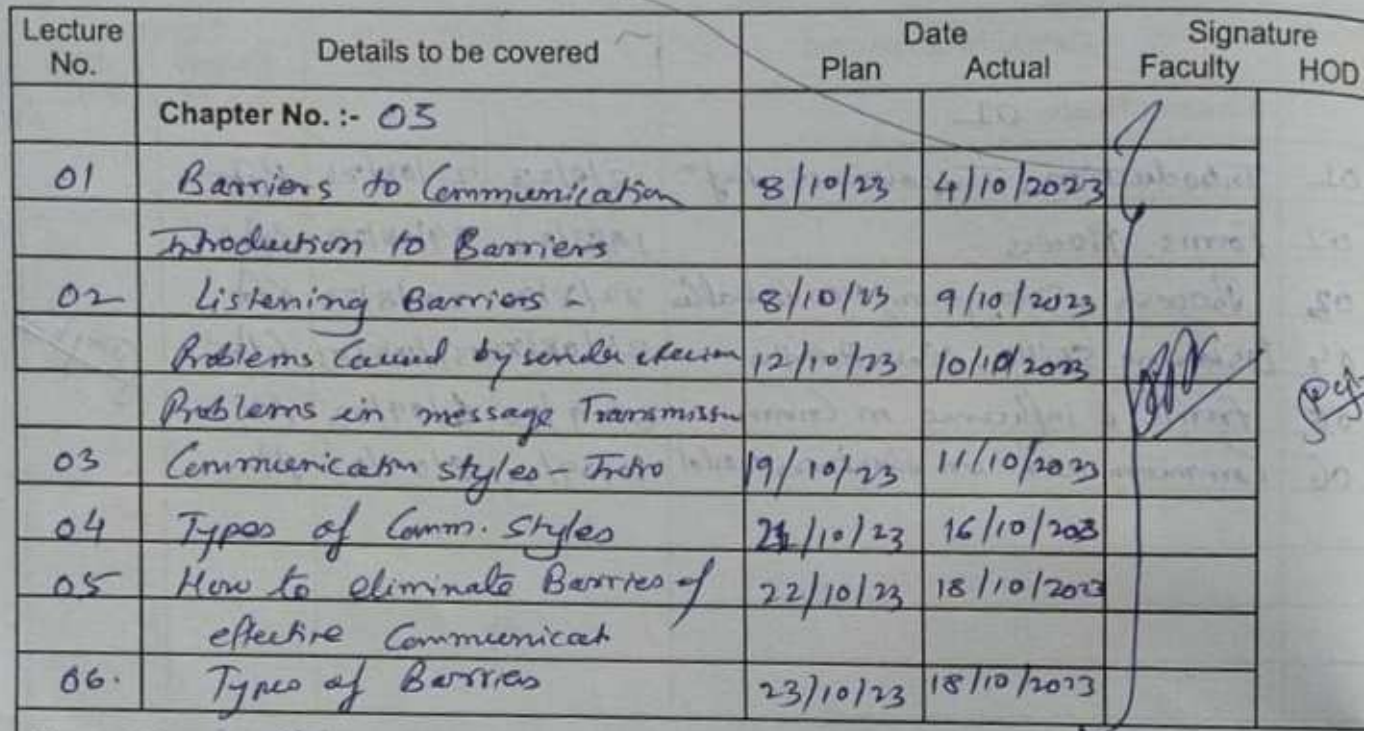 Lecture No. Details to be covered Date Plan Actual Signature Faculty HOD
Chapter No. :- 03
01 Barriers to Communication 8/10/23 4/10/2023
Introduction to Barriers
02 Listening Barriers - 8/10/23 9/10/2023
Problems Caused by sender 12/10/23 10/10/2023
Problems in message Transmissn
03 Communication styles - Intro 19/10/23 11/10/2023
04 Types of Comm. Styles 21/10/23 16/10/203
05 How to eliminate Barries of 22/10/23 18/10/2023
effective Communicat
06. Types of Barries 23/10/23 18/10/2023